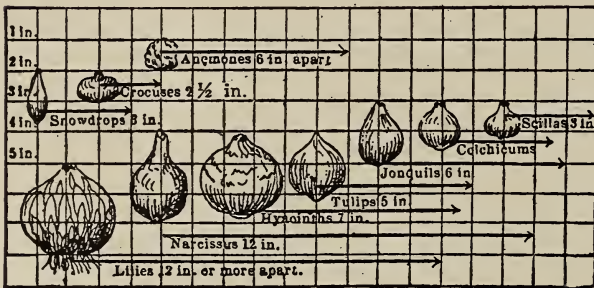 1 in.
2 in.
3 in.
4 in.
5 in.
Anemones 6 in. apart
Crocuses 2 ½ in.
Snowdrops 3 in.
Scillas 3 in.
Colchicums
Jonquils 6 in
Tulips 5 in
Hyacinths 7 in.
Narcissus 12 in.
Lilies 12 in. or more apart.